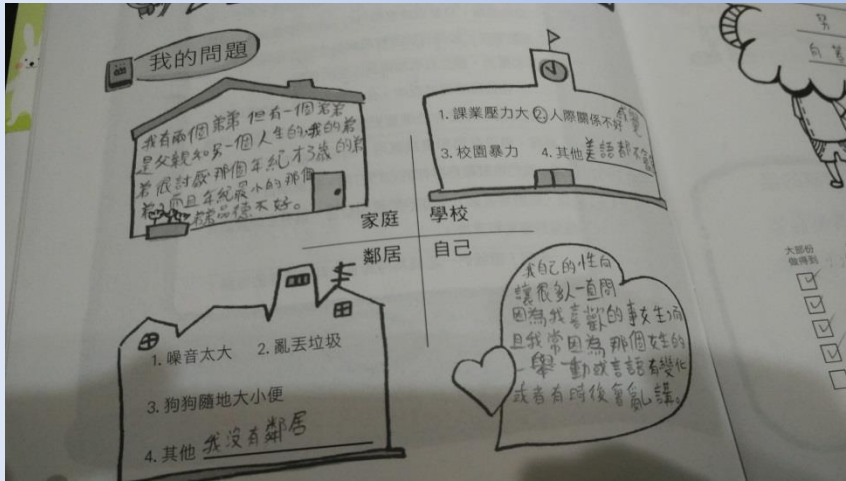 我的問題
我有兩個弟弟但有一個弟弟
是父親和另一個人生的,我的弟
弟很討厭那個年紀才3歲的弟
弟,而且年紀最小的那個
品德不好。
家庭
1. 課業壓力大 2. 人際關係不好 感覺
3. 校園暴力 4. 其他 美語都不
學校
鄰居
1. 噪音太大 2. 亂丟垃圾
3. 狗狗隨地大小便
4. 其他 我沒有鄰居
自己
我自己的性向
讓很多人一直問
因為我喜歡的事女生,而
且我常因為那個女生的
一舉一動或言語有變化
或者有時後會亂講。
大部份
做得到